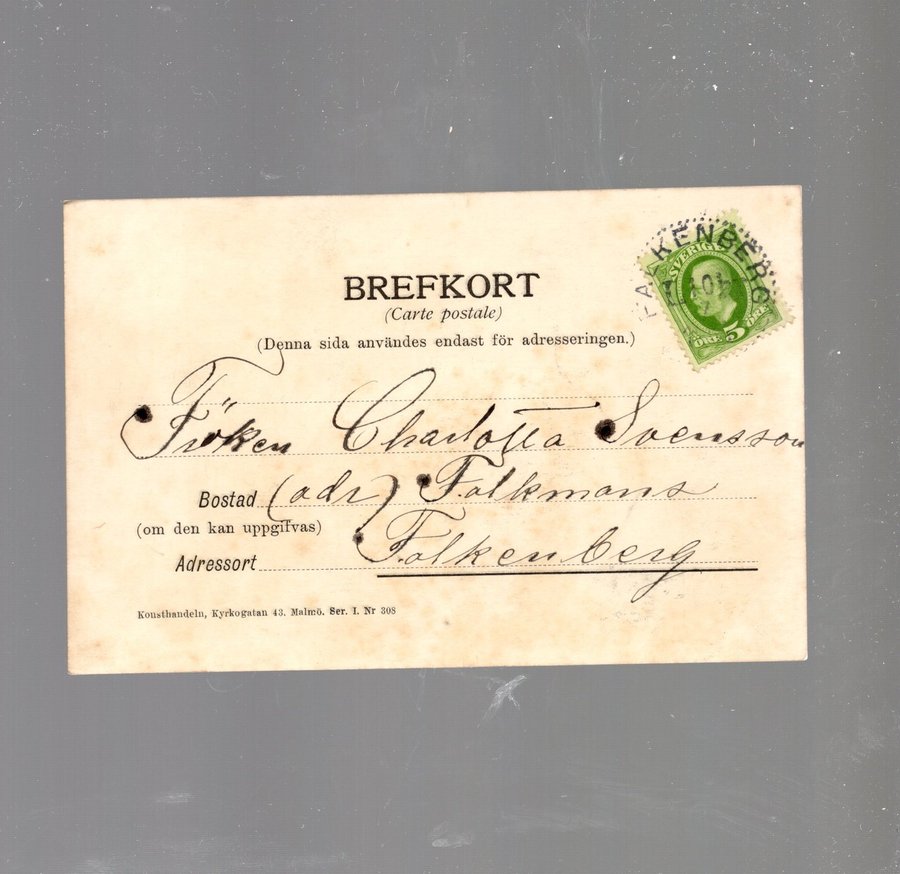 BREFKORT
(Carte postale)
(Denna sida användes endast för adresseringen.)
FALKENBERG
SVERIGE
ÖRE 5 ÖRE
Fröken Charlotta Svensson
Bostad (adr) Falkmans
(om den kan uppgifvas)
Adressort Falkenberg
Konsthandeln, Kyrkogatan 43. Malmö. Ser. I. Nr 308